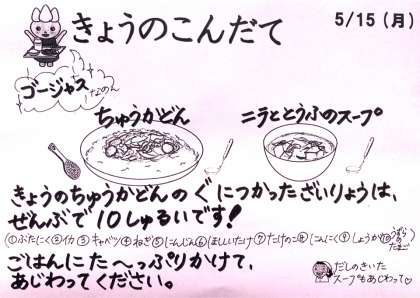 きょうのこんだて
5/15(月)
ゴージャス
なのん
ちゅうかどん
ニラととうふのスープ
きょうのちゅうかどんのぐにつかったざいりょうは、
ぜんぶで10しゅるいです!
(①ぶたにく②イカ③キャベツ④ねぎ⑤にんじん⑥ほししいたけ⑦たけのこ⑧にんにく⑨しょうが⑩うずらのたまご)
ごはんにた〜っぷりかけて、
あじわってください。
だしのきいた
スープもあじわって